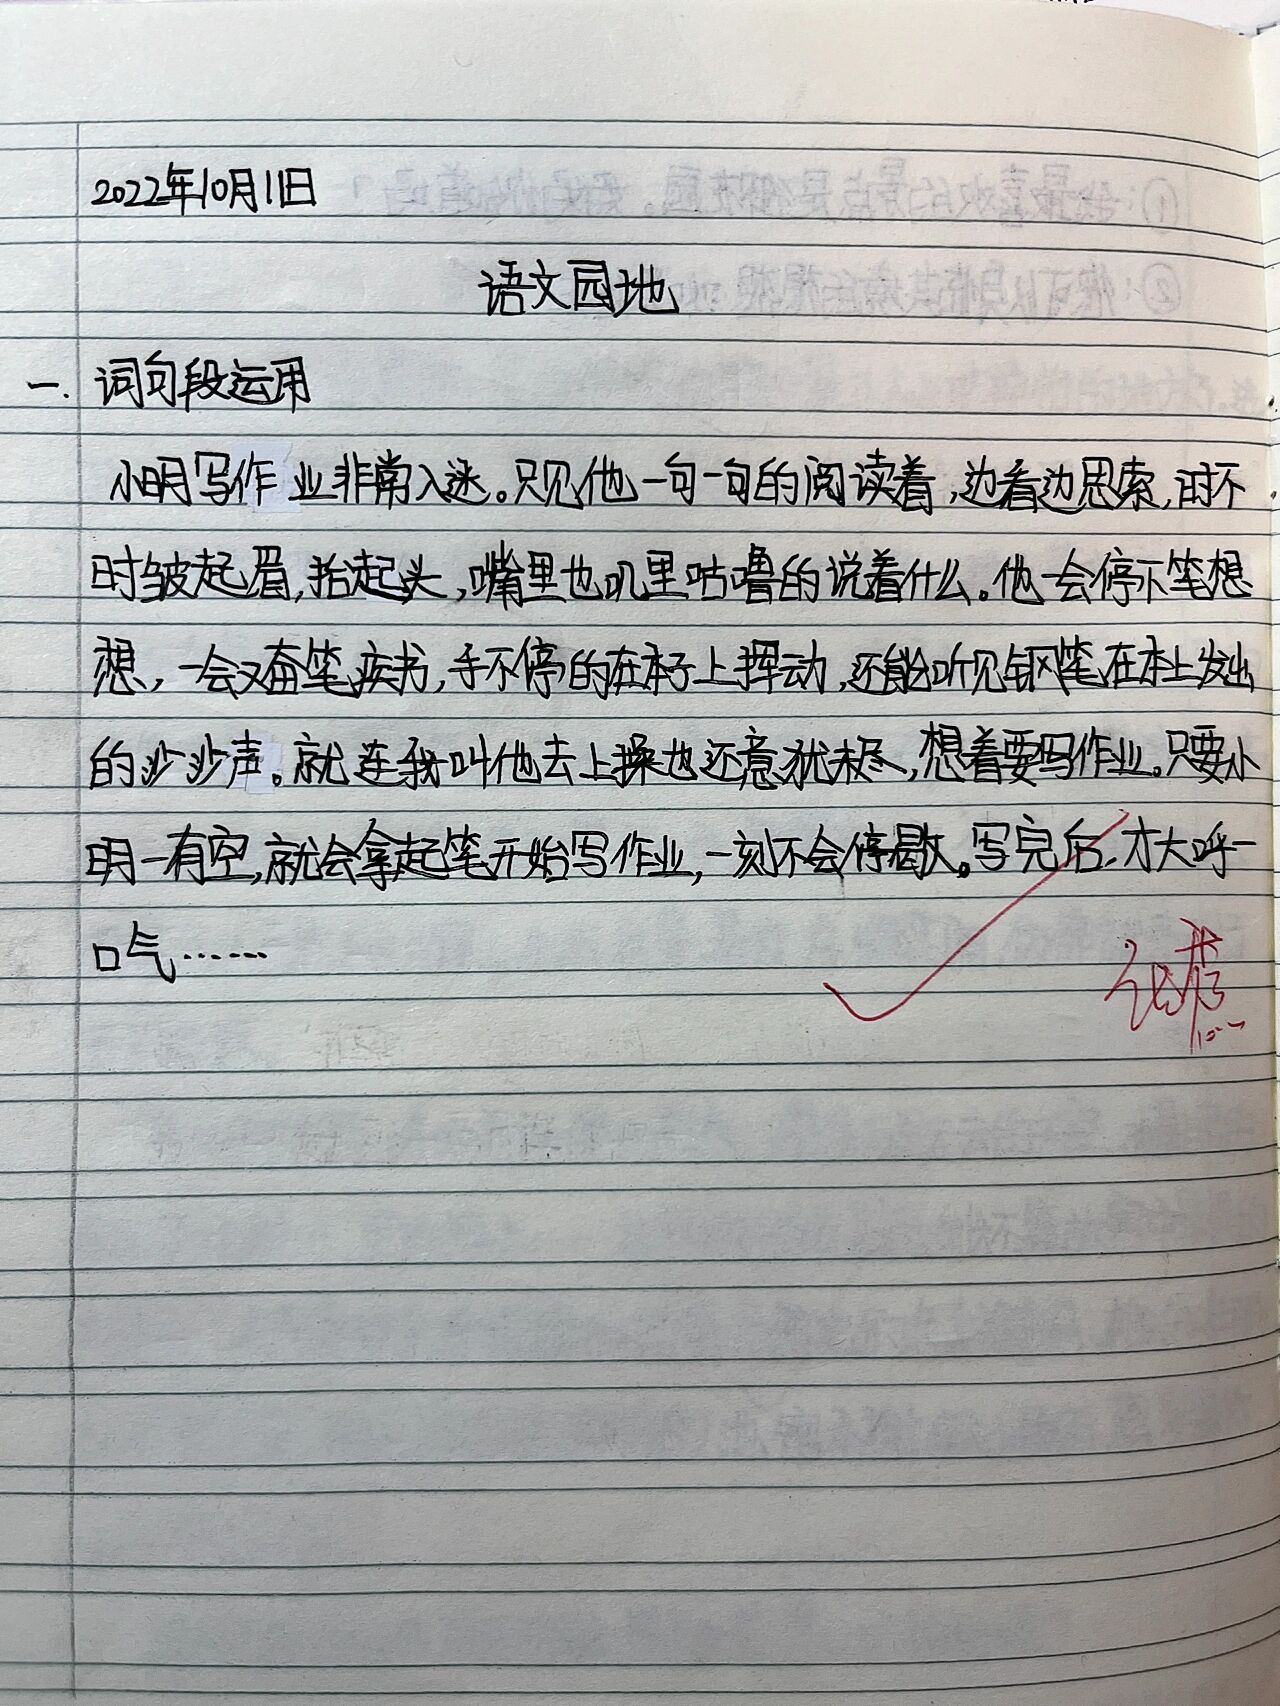 2022年10月11日
语文园地
一. 词句段运用
小明写作业非常入迷。只见他一句一句的阅读着,边看边思索,时不
时皱起眉,抬起头,嘴里也叽里咕噜的说着什么。他一会停下笔想
想,一会又奋笔疾书,手不停的在本子上挥动,还能听见钢笔在本上发出
的沙沙声。就连我叫他去上操也还意犹未尽,想着要写作业。只要小
明一有空,就会拿起笔开始写作业,一刻不会停歇。写完后,才大呼一
口气……